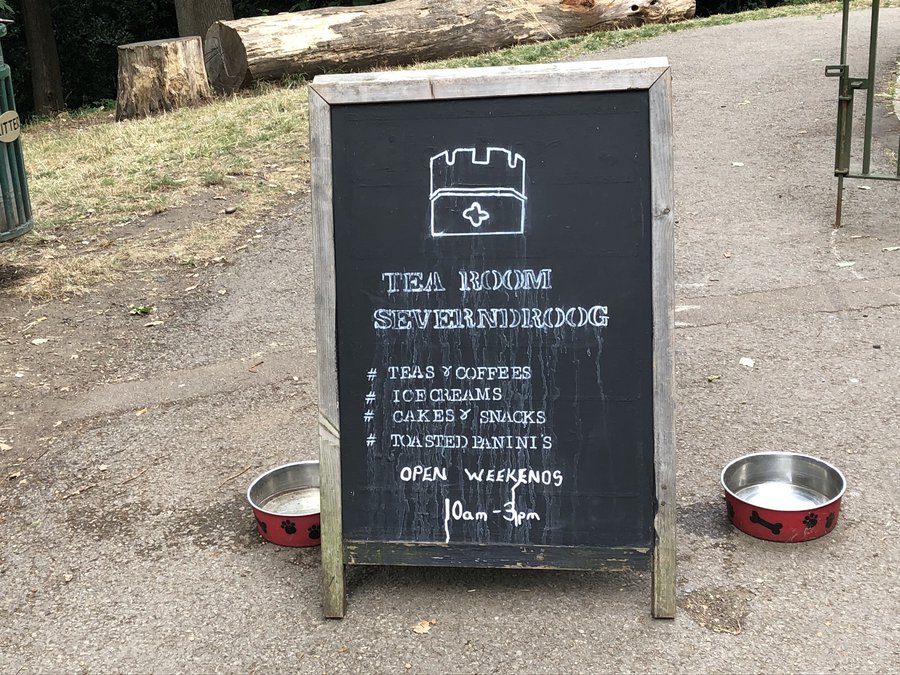 LITTE
TEA ROOM
SEVERNDROOG
# TEAS & COFFEES
# ICE CREAMS
# CAKES & SNACKS
# TOASTED PANINI'S
OPEN WEEKENDS
10am-3pm